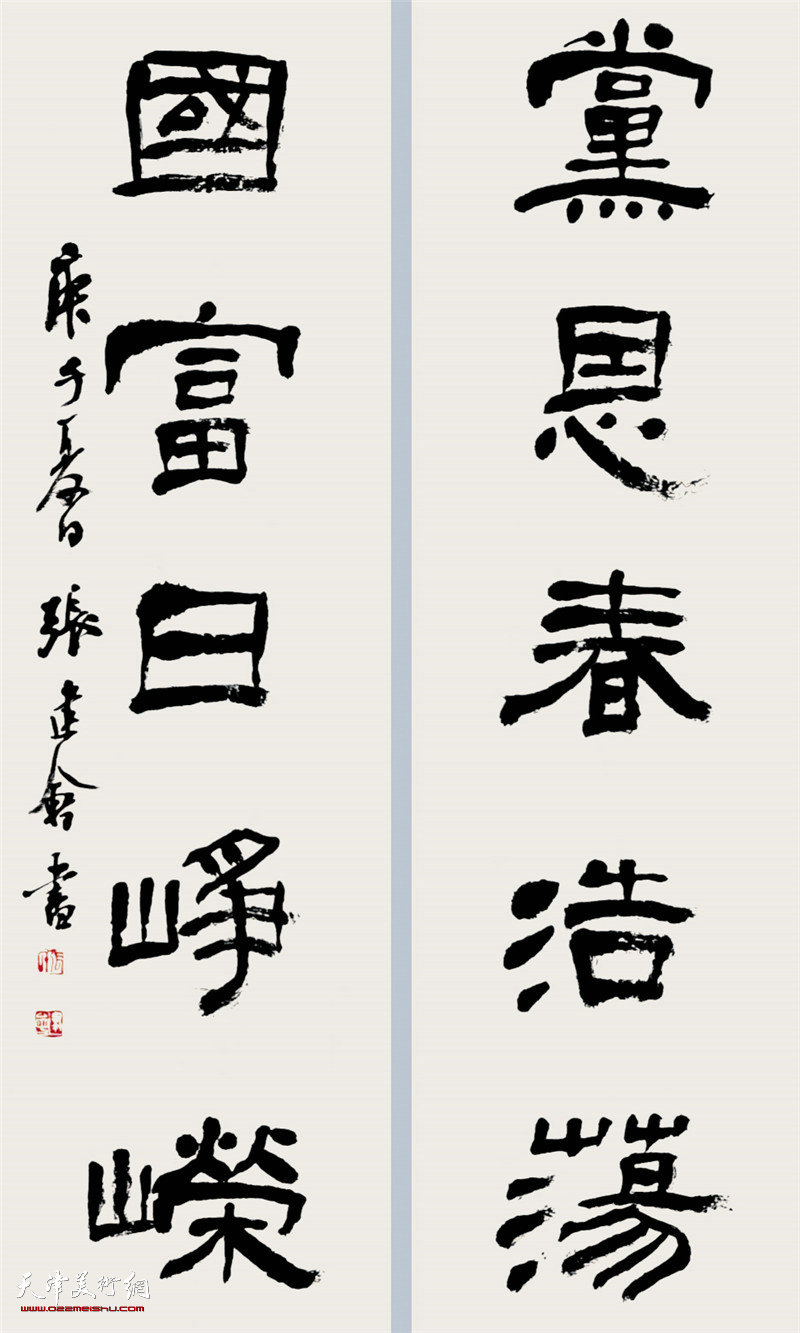 黨恩春浩蕩
國富日崢嶸
庚子夏日 張建會書
天津美術網
www.022meishu.com